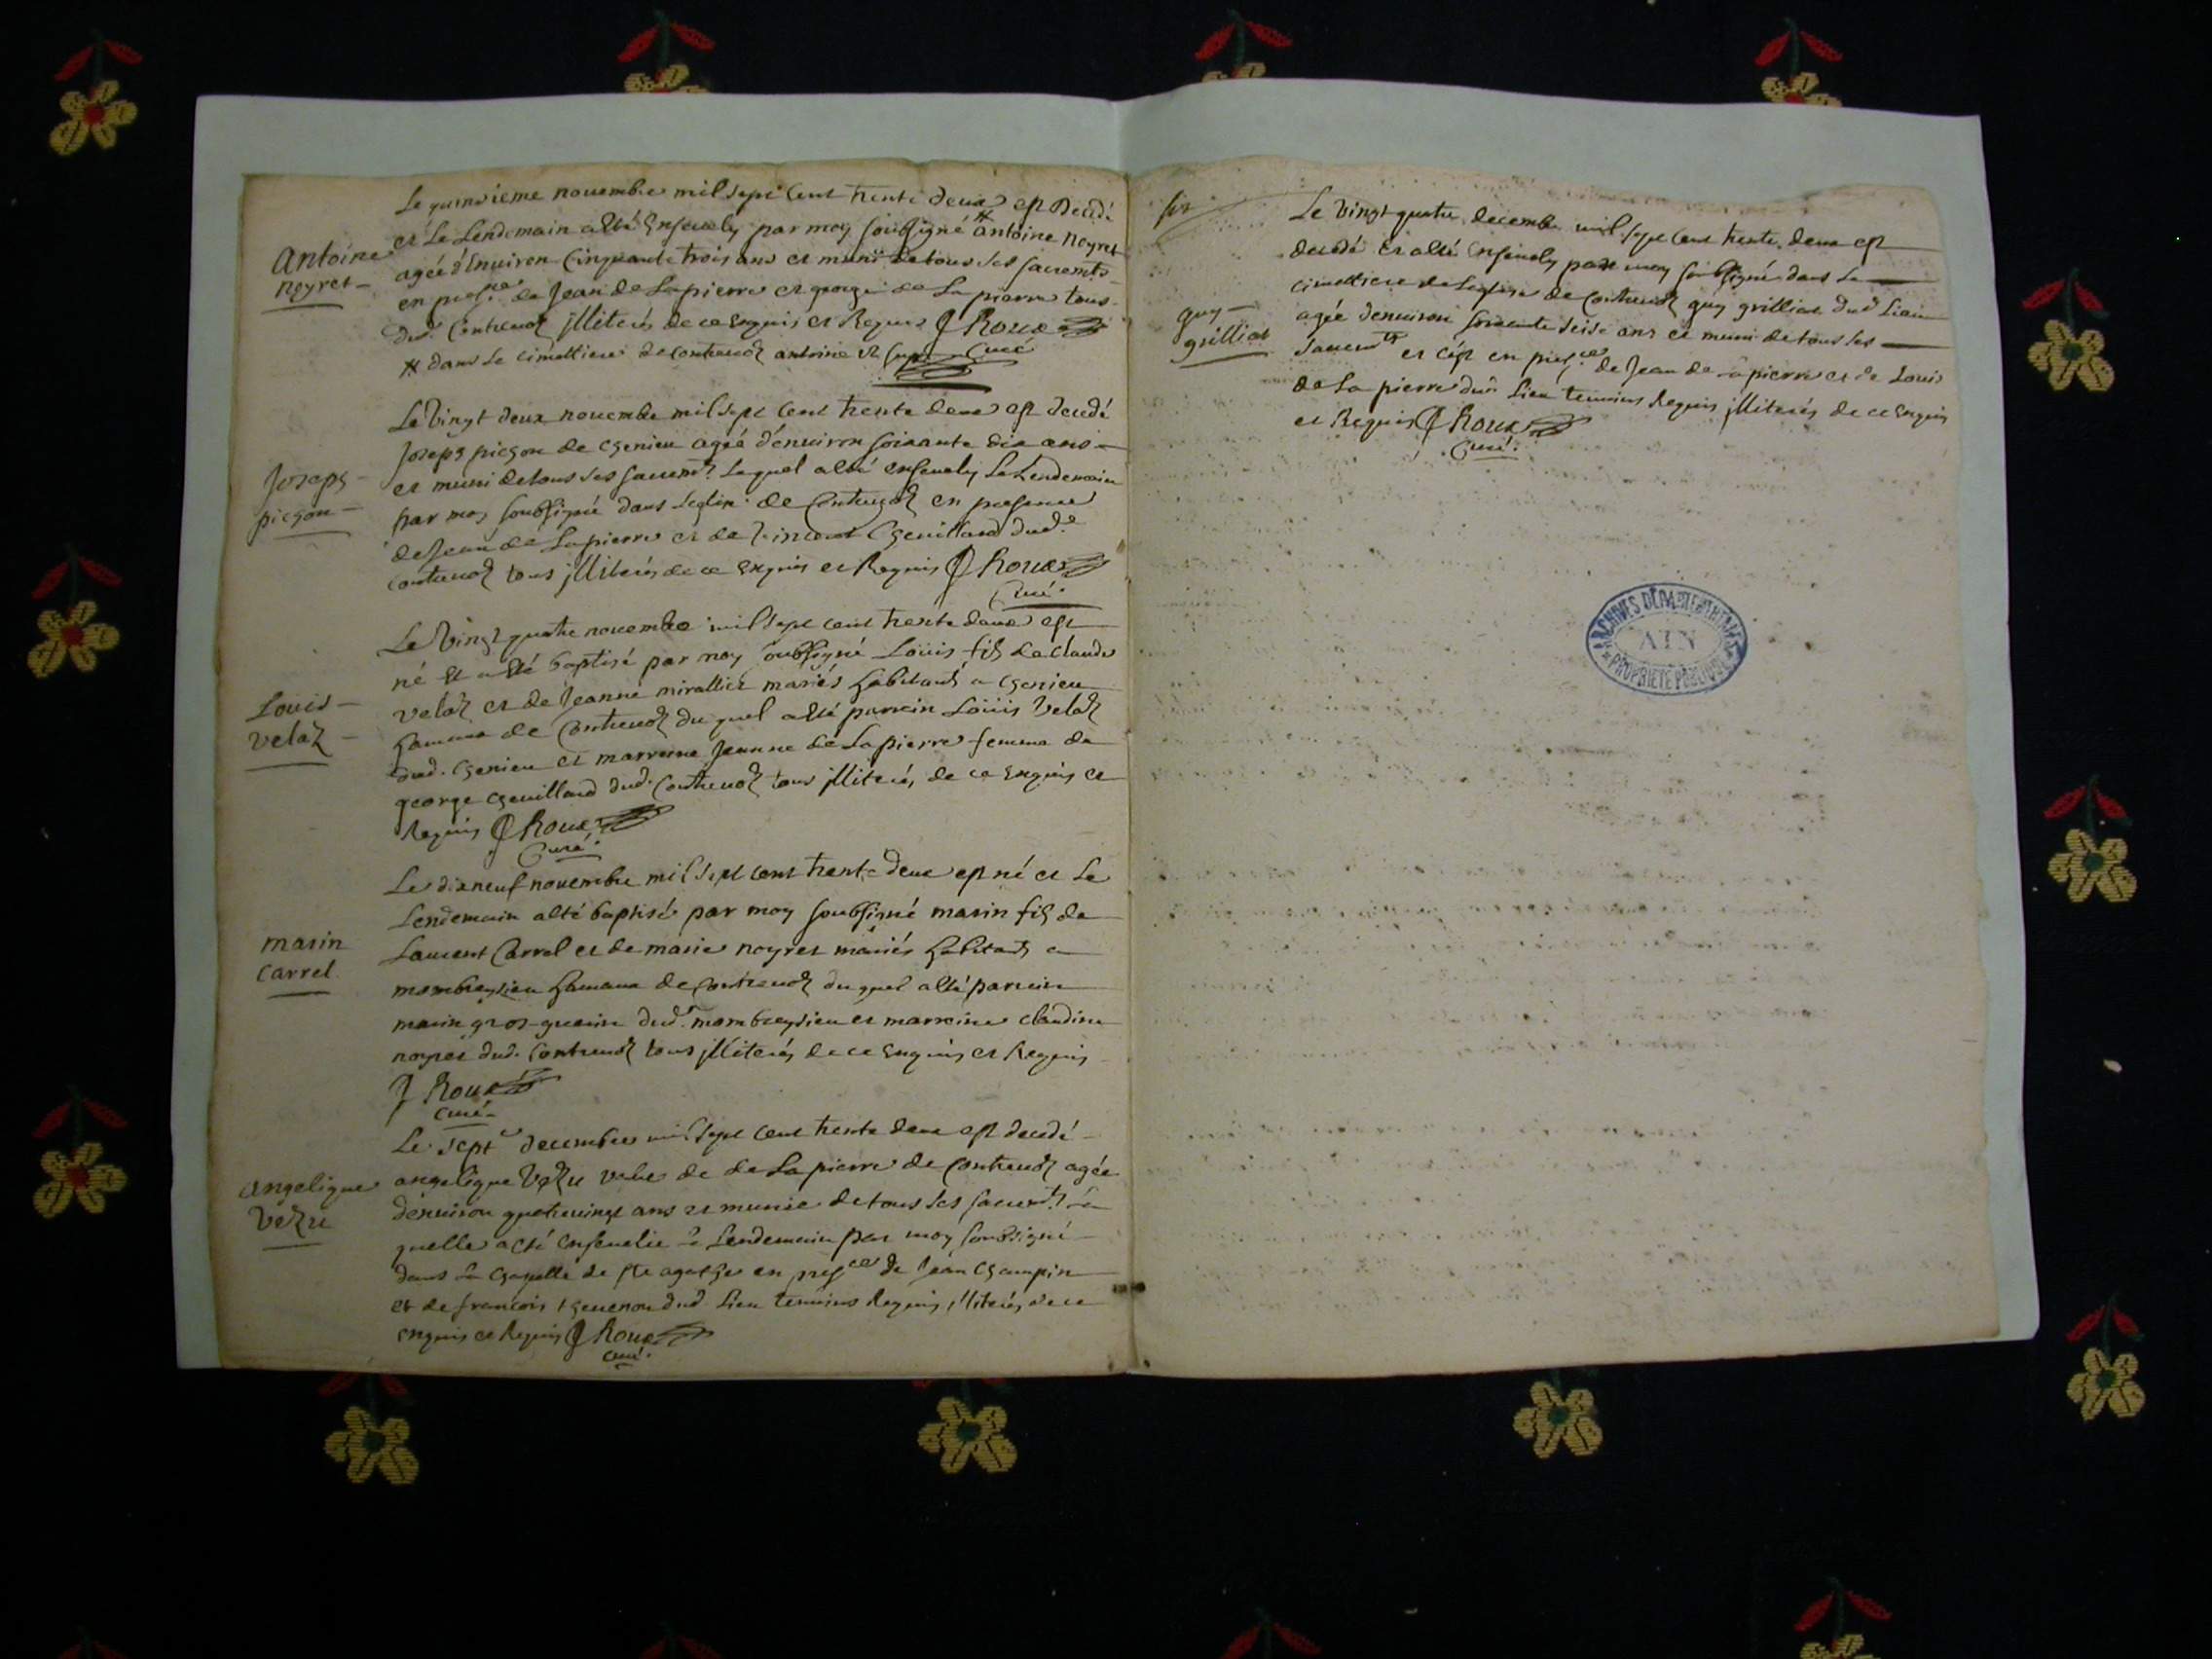 Le quinsieme novembre mil sept cent trente deux est decedé
et Le Lendemain a été Ensevely par moy soubsigné # antoine neyret
antoine neyret
agée d'environ Cinquante trois ans et muni de tous ses sacremts
en pnce de Jean de Lapierre et george de La pierre tous
dud. Contrevoz illiterés de ce Enquis et Requis J Roux
curé
# dans Le cimettiere de contrevoz antoine
Le Vingt deux novembre mil sept cent trente deux est decedé
Joseph pichon
Joseph pichon de Chenieu agée d'environ soixante dix ans
et muni de tous ses sacremts. Lequel a été ensevely Le Lendemain
par moy soubsigné dans Leglise de Contrevoz en presence
de Jean de Lapierre et de Vincent Chevillard dud.
Contrevoz tous illiterés de ce Enquis et Requis J Roux
Curé.
Le Vingt quatre novembre mil sept cent trente deux est
né Et a été baptisé par moy soubsigné Loüis fils de claude
Louis velaz
velaz et de Jeanne mirallier mariés habitants a chenieu
hameau de Contrevoz du quel a été parrein Loüis Velaz
dud. chenieu et marreine Jeanne de Lapierre femme de
george chevillard dud. Contrevoz tous illiterés de ce Enquis et
Requis J Roux
Curé.
Le dixneuf novembre mil sept cent trente deux est né et Le
Lendemain a été baptisé par moy soubsigné marin fils de
marin carrel
Laurent Carrel et de marie neyret mariés habitants a
montbreysieu hameau de Contrevoz du quel a été parrein
marin gros-gurin dud. montbreysieu et marreine claudine
neyret dud. Contrevoz tous illiterés de ce Enquis et Requis
J Roux
curé
Le sept decembre mil sept cent trente deux est decedé
angelique Vezu
angelique Vezu vefve de de La pierre de Contrevoz agée
d'environ quatrevingt ans et munie de tous ses sacremts. La
quelle a été ensevelie Le Lendemain par moy soubsigné
dans La chapelle de ste agathe en presce de Jean champin
et de francois chevenon dud. Lieu temoins Requis illiterés de ce
enquis et Requis J Roux
curé.
Le Vingt quatre decembre mil sept cent trente deux est
decedé et a été Ensevely par moy soubsigné dans Le
cimettiere de Leglise de Contrevoz guy grilliat dud Lieu
guy grilliat
agée d'environ soixante seise ans et muni de tous ses
sacremts et cest en presce. de Jean de Lapierre et de Louis
de La pierre dud Lieu temoins Requis illiterés de ce Enquis
et Requis J Roux
Curé.
ARCHIVES DÉPARTEMENTALES
AIN
PROPRIÉTÉ PUBLIQUE